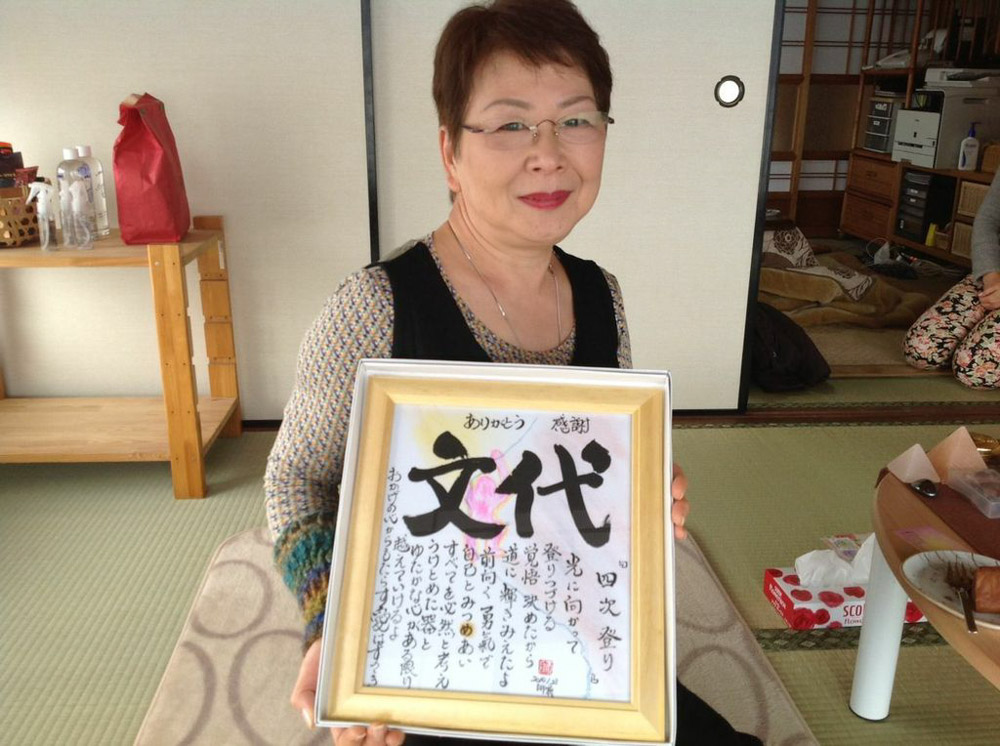 ありがとう 感謝
文代
四次登り
光に向かって
登りつづける
覚悟決めたから
道に輝きみえたよ
前向く勇気で
自己とみつめあい
すべてを必然と考え
うけとめた器と
ゆたかな心がある限り
越えていけるよ
おかげの心からもたらす愛にすすめる
SCO